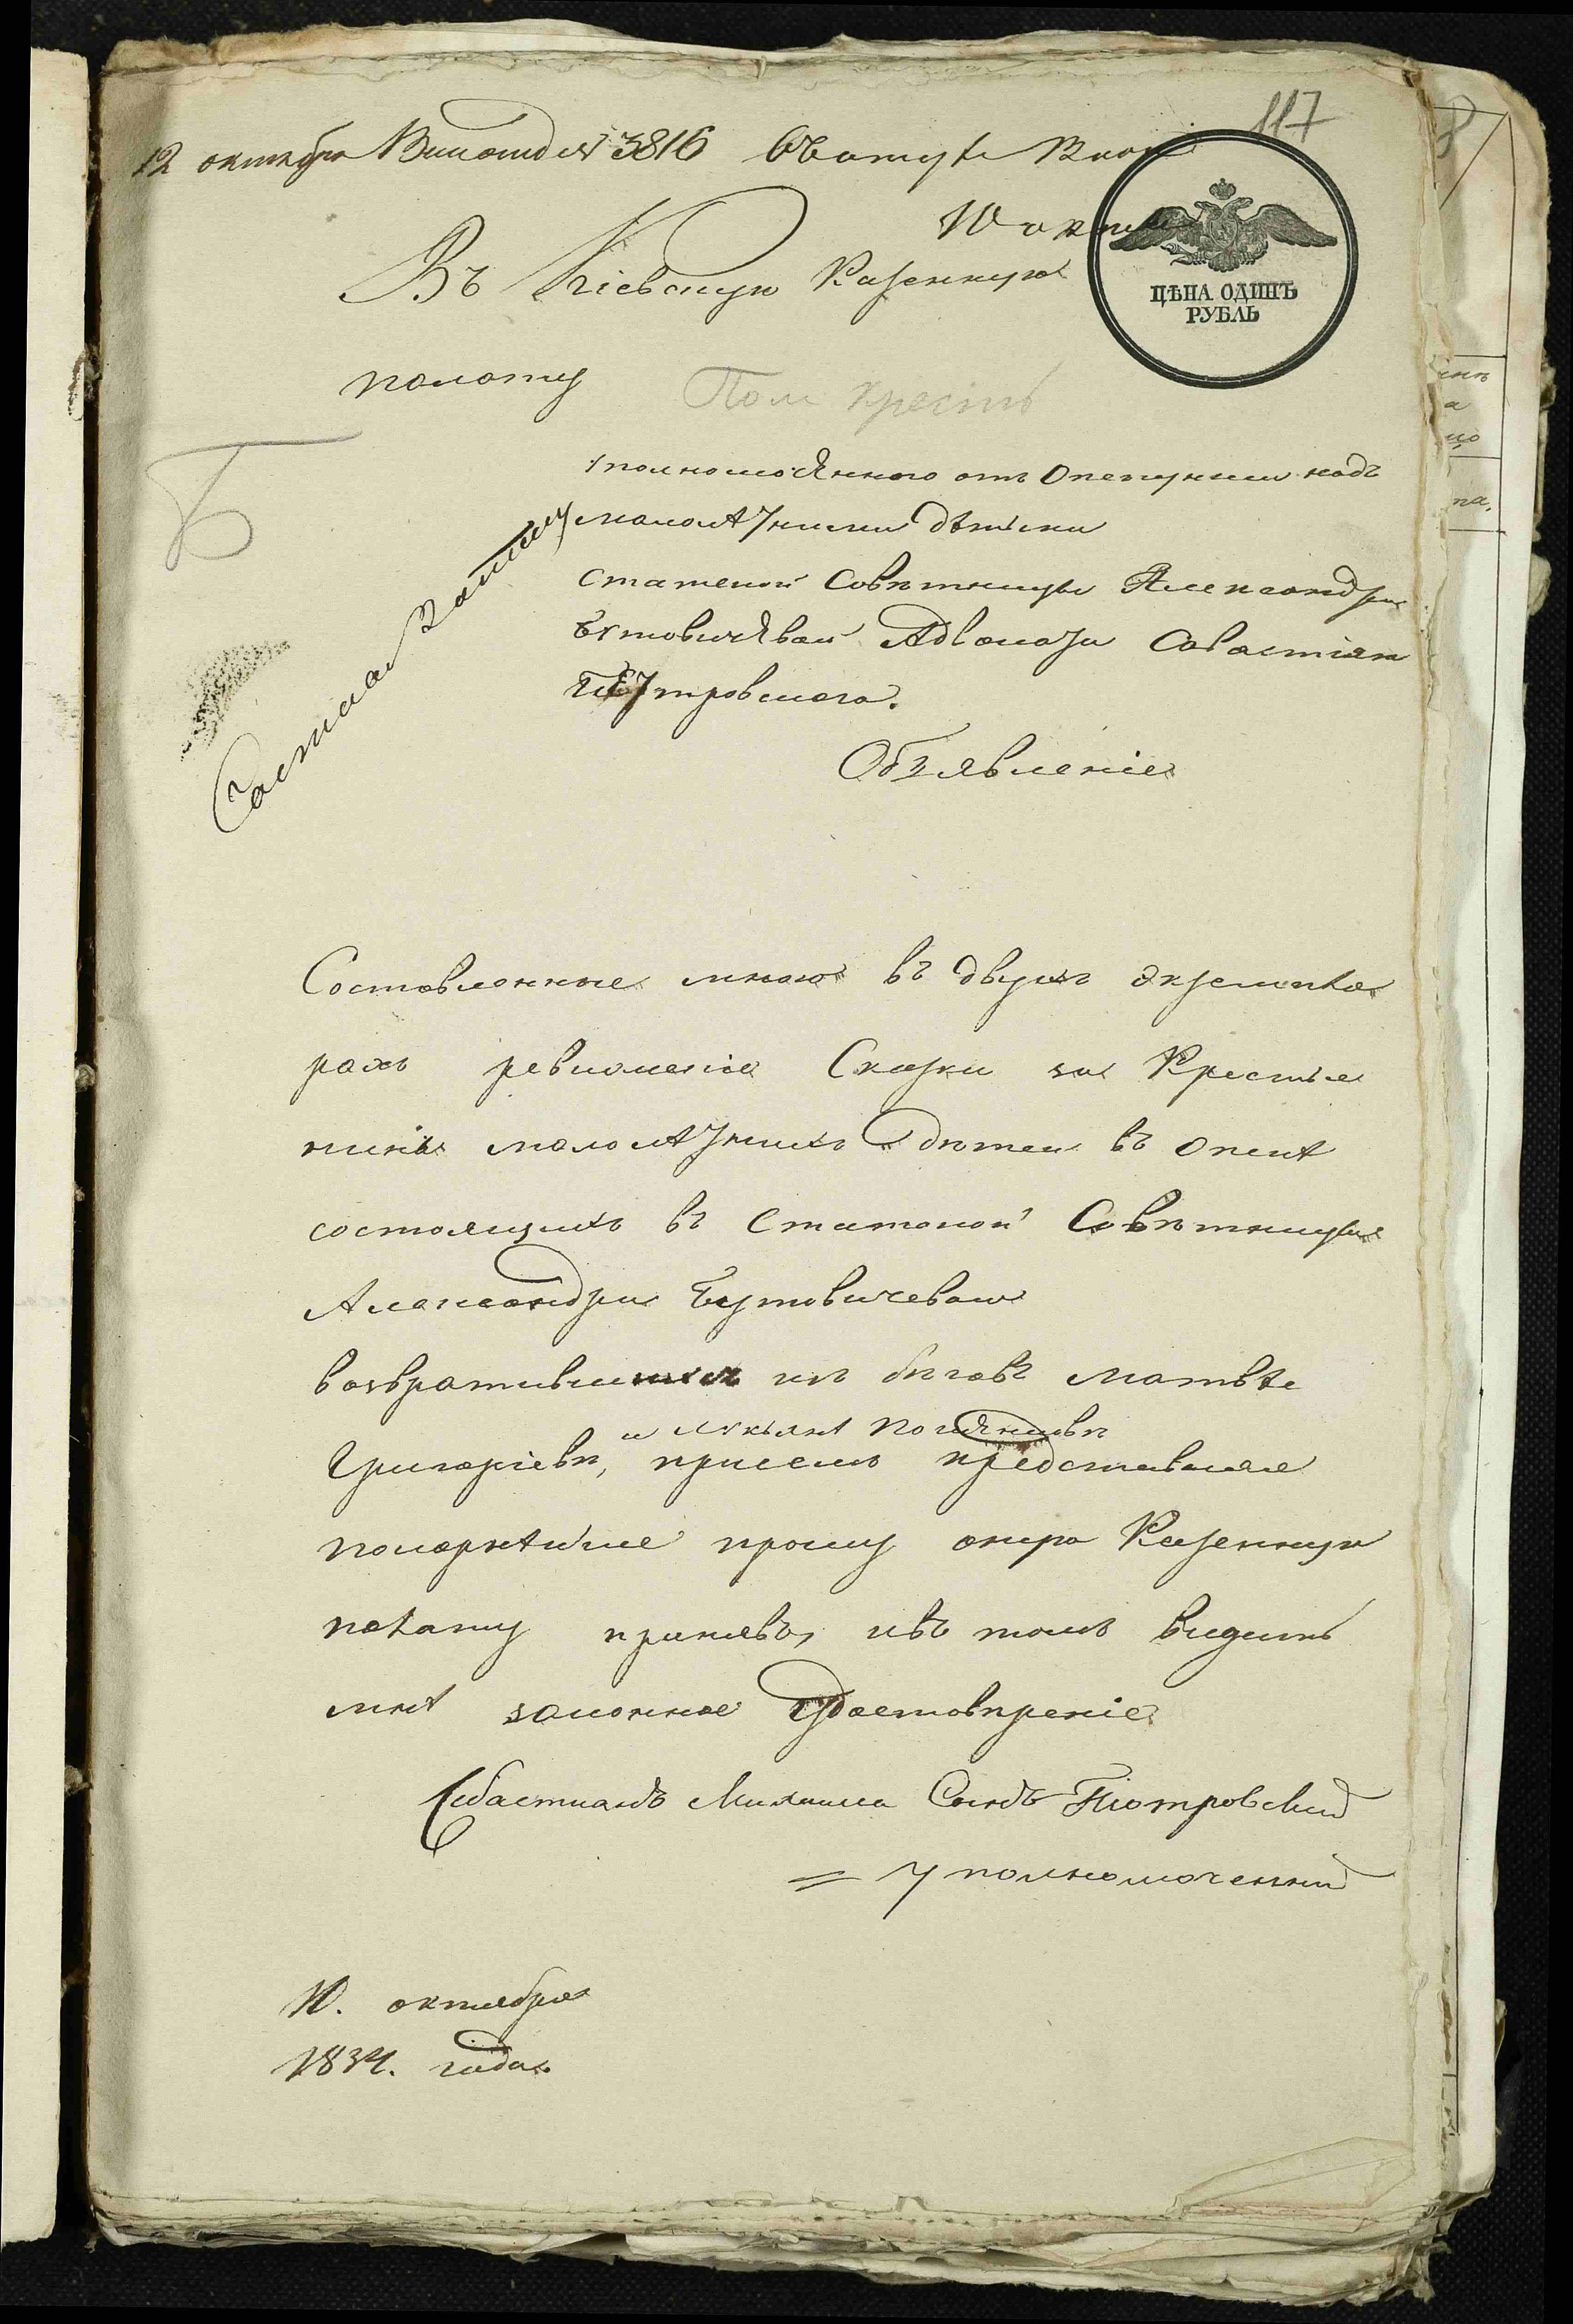 117
12 октября № 3816
Въ Кіевскую Казенную
ЦѢНА ОДИНЪ
РУБЛЬ
полату
Пом крест
Б
уполномоченного отъ Опекунши надъ
малолѣтними дѣтьми
Статской Совѣтницы Александры
Бутовичевой Адвоката Савастіяна
Піотровского.
Объявленіе
Составленные мною въ двухъ экземпля
рахъ ревизскіе Сказки на Крестья
нинъ малолѣтнихъ дѣтей въ опекѣ
состоящихъ въ Статской Совѣтницы
Александры Бутовичевой
возвратившихся изъ бѣговъ Матвѣе
и Лукьянѣ
Григоріевѣ, присемъ представляя
покорнѣйше прошу оную Казенную
полату принявъ, ивъ томъ видать
мнѣ законное Удостовѣреніе
Себастианъ Михаила Сынъ Піотровский
= уполномоченний
10. октября
1834. года